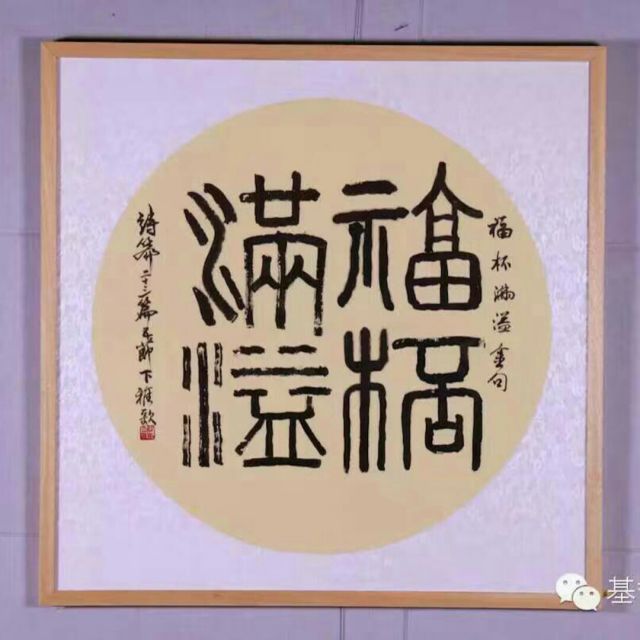 福杯滿溢金句
福杯
滿溢
詩篇二十三篇五節下雅歌
基